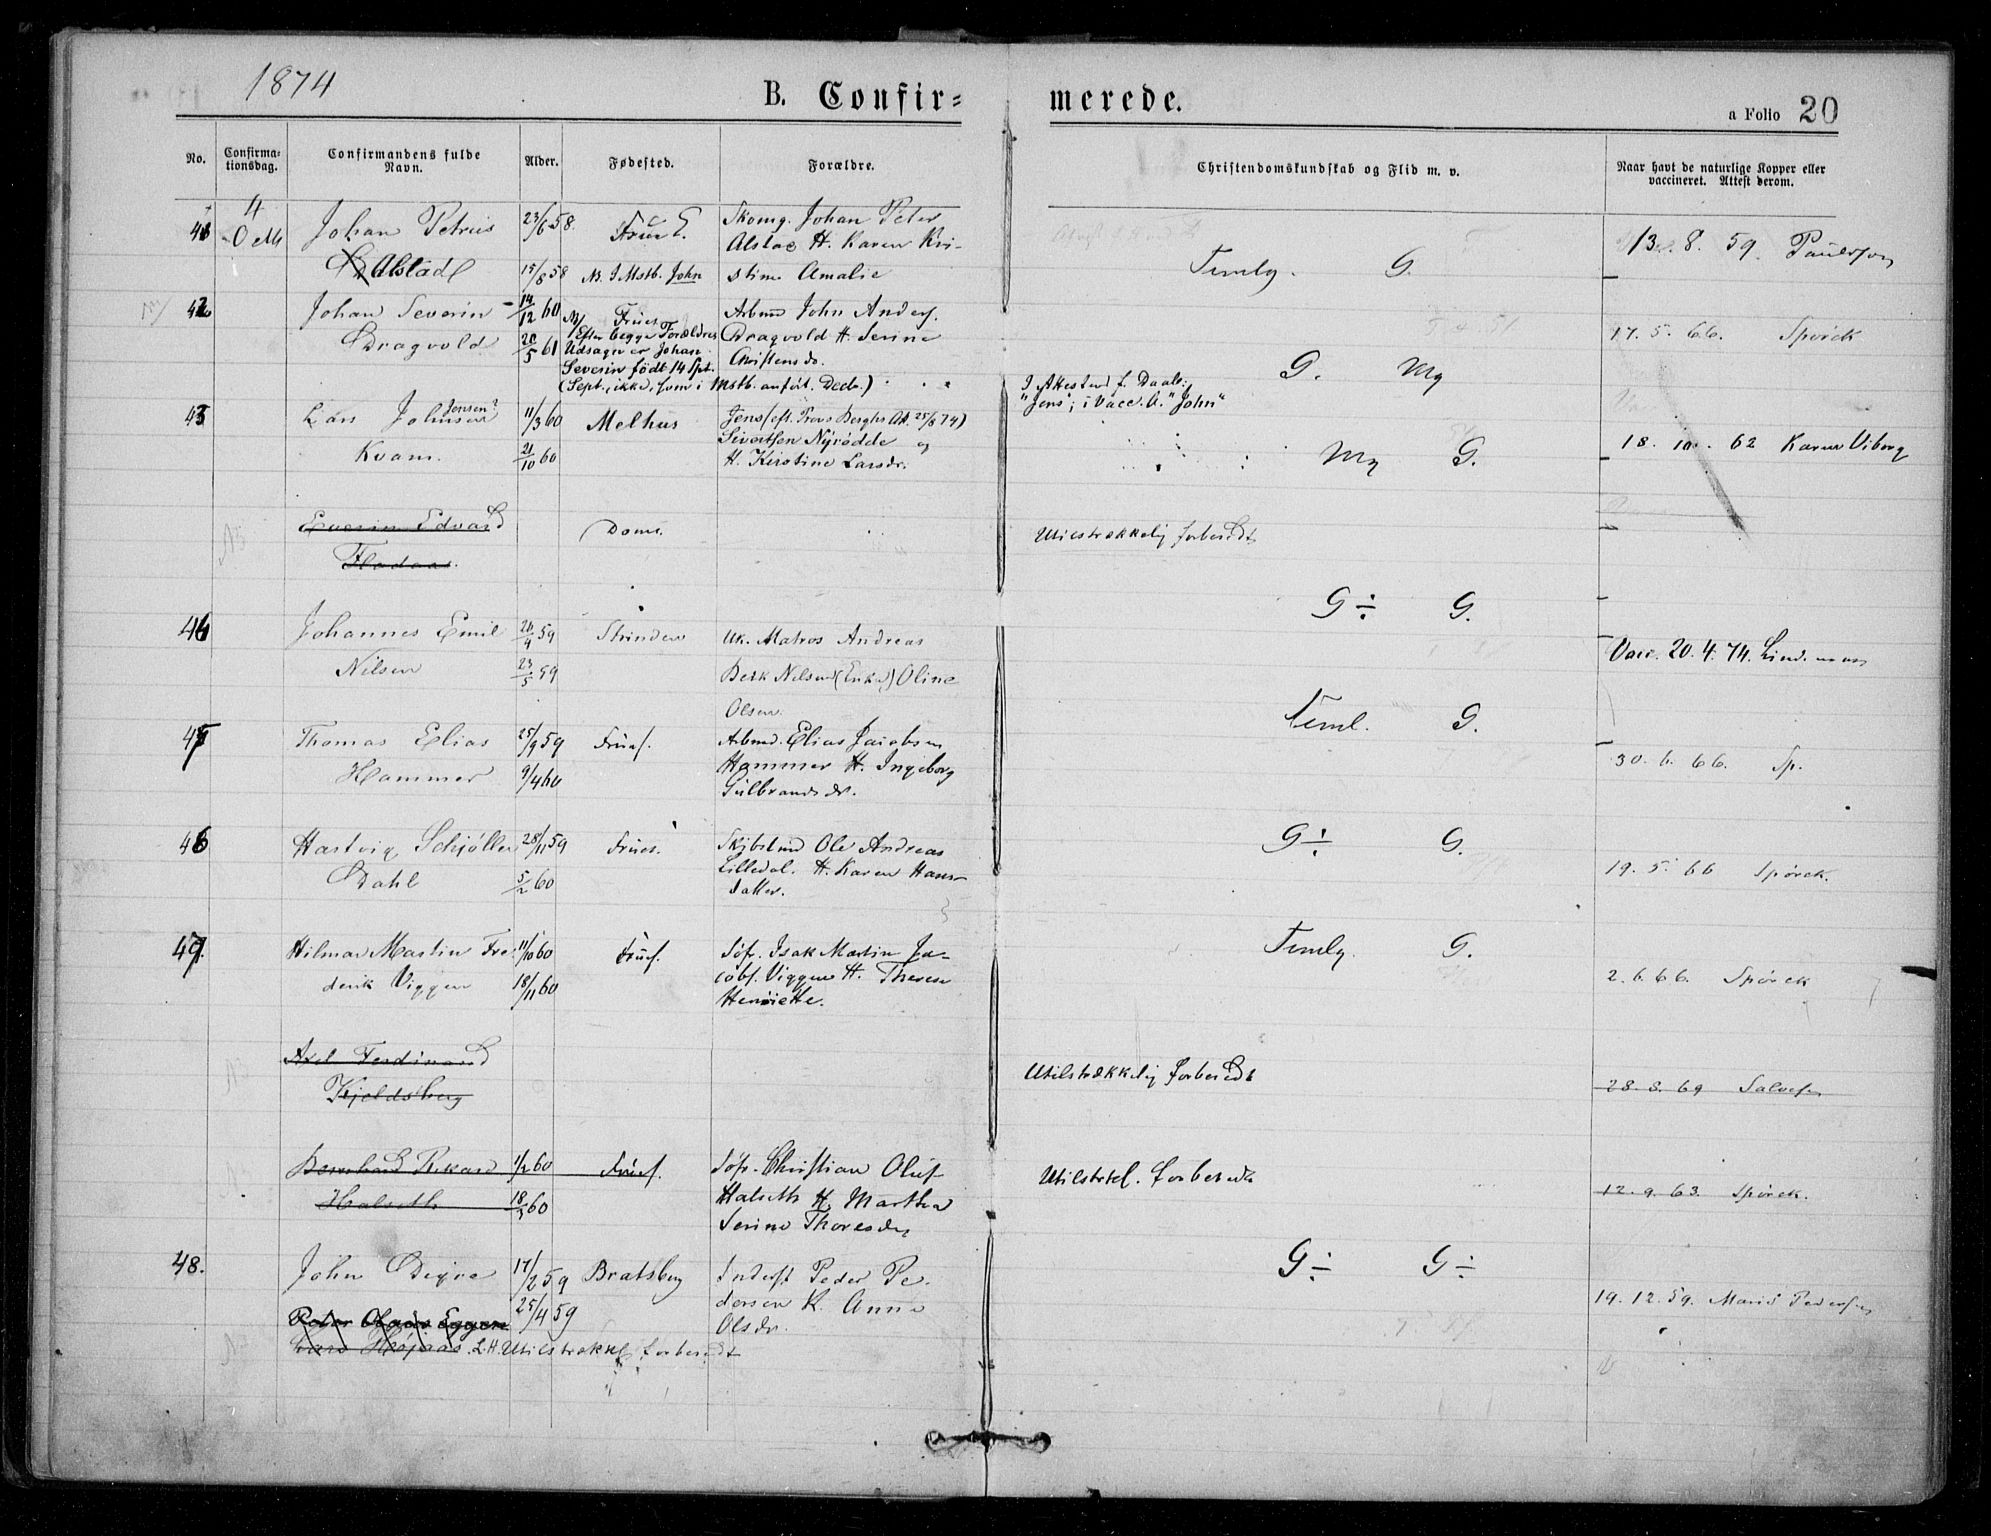 1874
B. Confir=
merede.
a Folio 20
No.
Confirma-
tionsdag.
Confirmandens fulde
Navn.
Alder.
Fødested.
Forældre.
Christendomskundskab og Flid m. v.
Naar havt de naturlige Kopper eller
vaccineret. Attest derom.
4
41 Johan Petrus 23/6 58. Skomg. Johan Peter
Alstad 15/8 58 NB. I Mstb. John stine Amalie
H. Karen Kri-
Temlg. G. 13. 8. 59. Paulsson
42 Johan Severin 14/12 60 Frues Arbmd John Anders.
Dragvold 20/5 61 Dragvold H. Serine
Christensdr.
NB Efter begge Forældres
Udsagn er Johan
Severin født 14 Spt.
(Sept., ikke, som i Mstb. anført. Decb.)
G. Mg 17. 5. 66. Spörck
43 Lars Johnsen Jensen? 11/3 60 Melhus Jens (eft. Provs Berghs Att. 25/8 74)
Kvam. 21/10 60 Sivertsen Nyrödde og
H. Kirstine Larsdr.
"Jens"; i Vacc. A. "John"
Mg G. 18. 10. 62 Karen Viborg
Edvard Doms. Utilstrækkelig forberedt
Flodaas.
G÷ G.
44 Johannes Emil 26/4 59 Strinden Uk. Matros Andreas
Nilsen 23/5 59 Berk Nilsen (Enke) Oline
Olsen.
Vacc. 20. 4. 74. Lindman
Teml. G.
45 Thomas Elias 25/9 59 Frues. Arbmd. Elias Jacobsen
Hammer 9/4 60 Hammer H. Ingeborg
Gulbrandsdr.
30. 6. 66. Sp.
46 Hartvig Schjöller 28/11 59 Frues. Ole Andreas
Dahl 5/2 60 Lilledal. H. Karen Hans-
datter.
G÷ G. 19. 5. 66 Spörck.
47. Hilmar Martin Fre- 11/10 60 Frues. Söfr. Isak Martin Ja-
derik Viggen 18/11 60 cobs. Viggen H. Therese
Henriette.
Temlg. G. 2. 6. 66. Spörck
Axel Ferdinand Utilstrækkelig forberedt
Kjeldsberg 28. 8. 69
Bernhard Rikard 1/2 60 Frues. Söfr. Christian Oluf
Halseth 18/3 60 Halseth H. Martha
Serine Thoresdr
Utilstrkl. forberedt 12. 9. 63. Spörck.
48. John Digre 17/2 59 Bratsberg Inderst Peder Pe-
25/4 59 dersen K. Anne
Olsdr.
G÷ G÷ 19. 12. 59. Marit Pedersen
Peter Olaus Eggen
Lars Höjaas. L.H. Utilstrækkel. forberedt